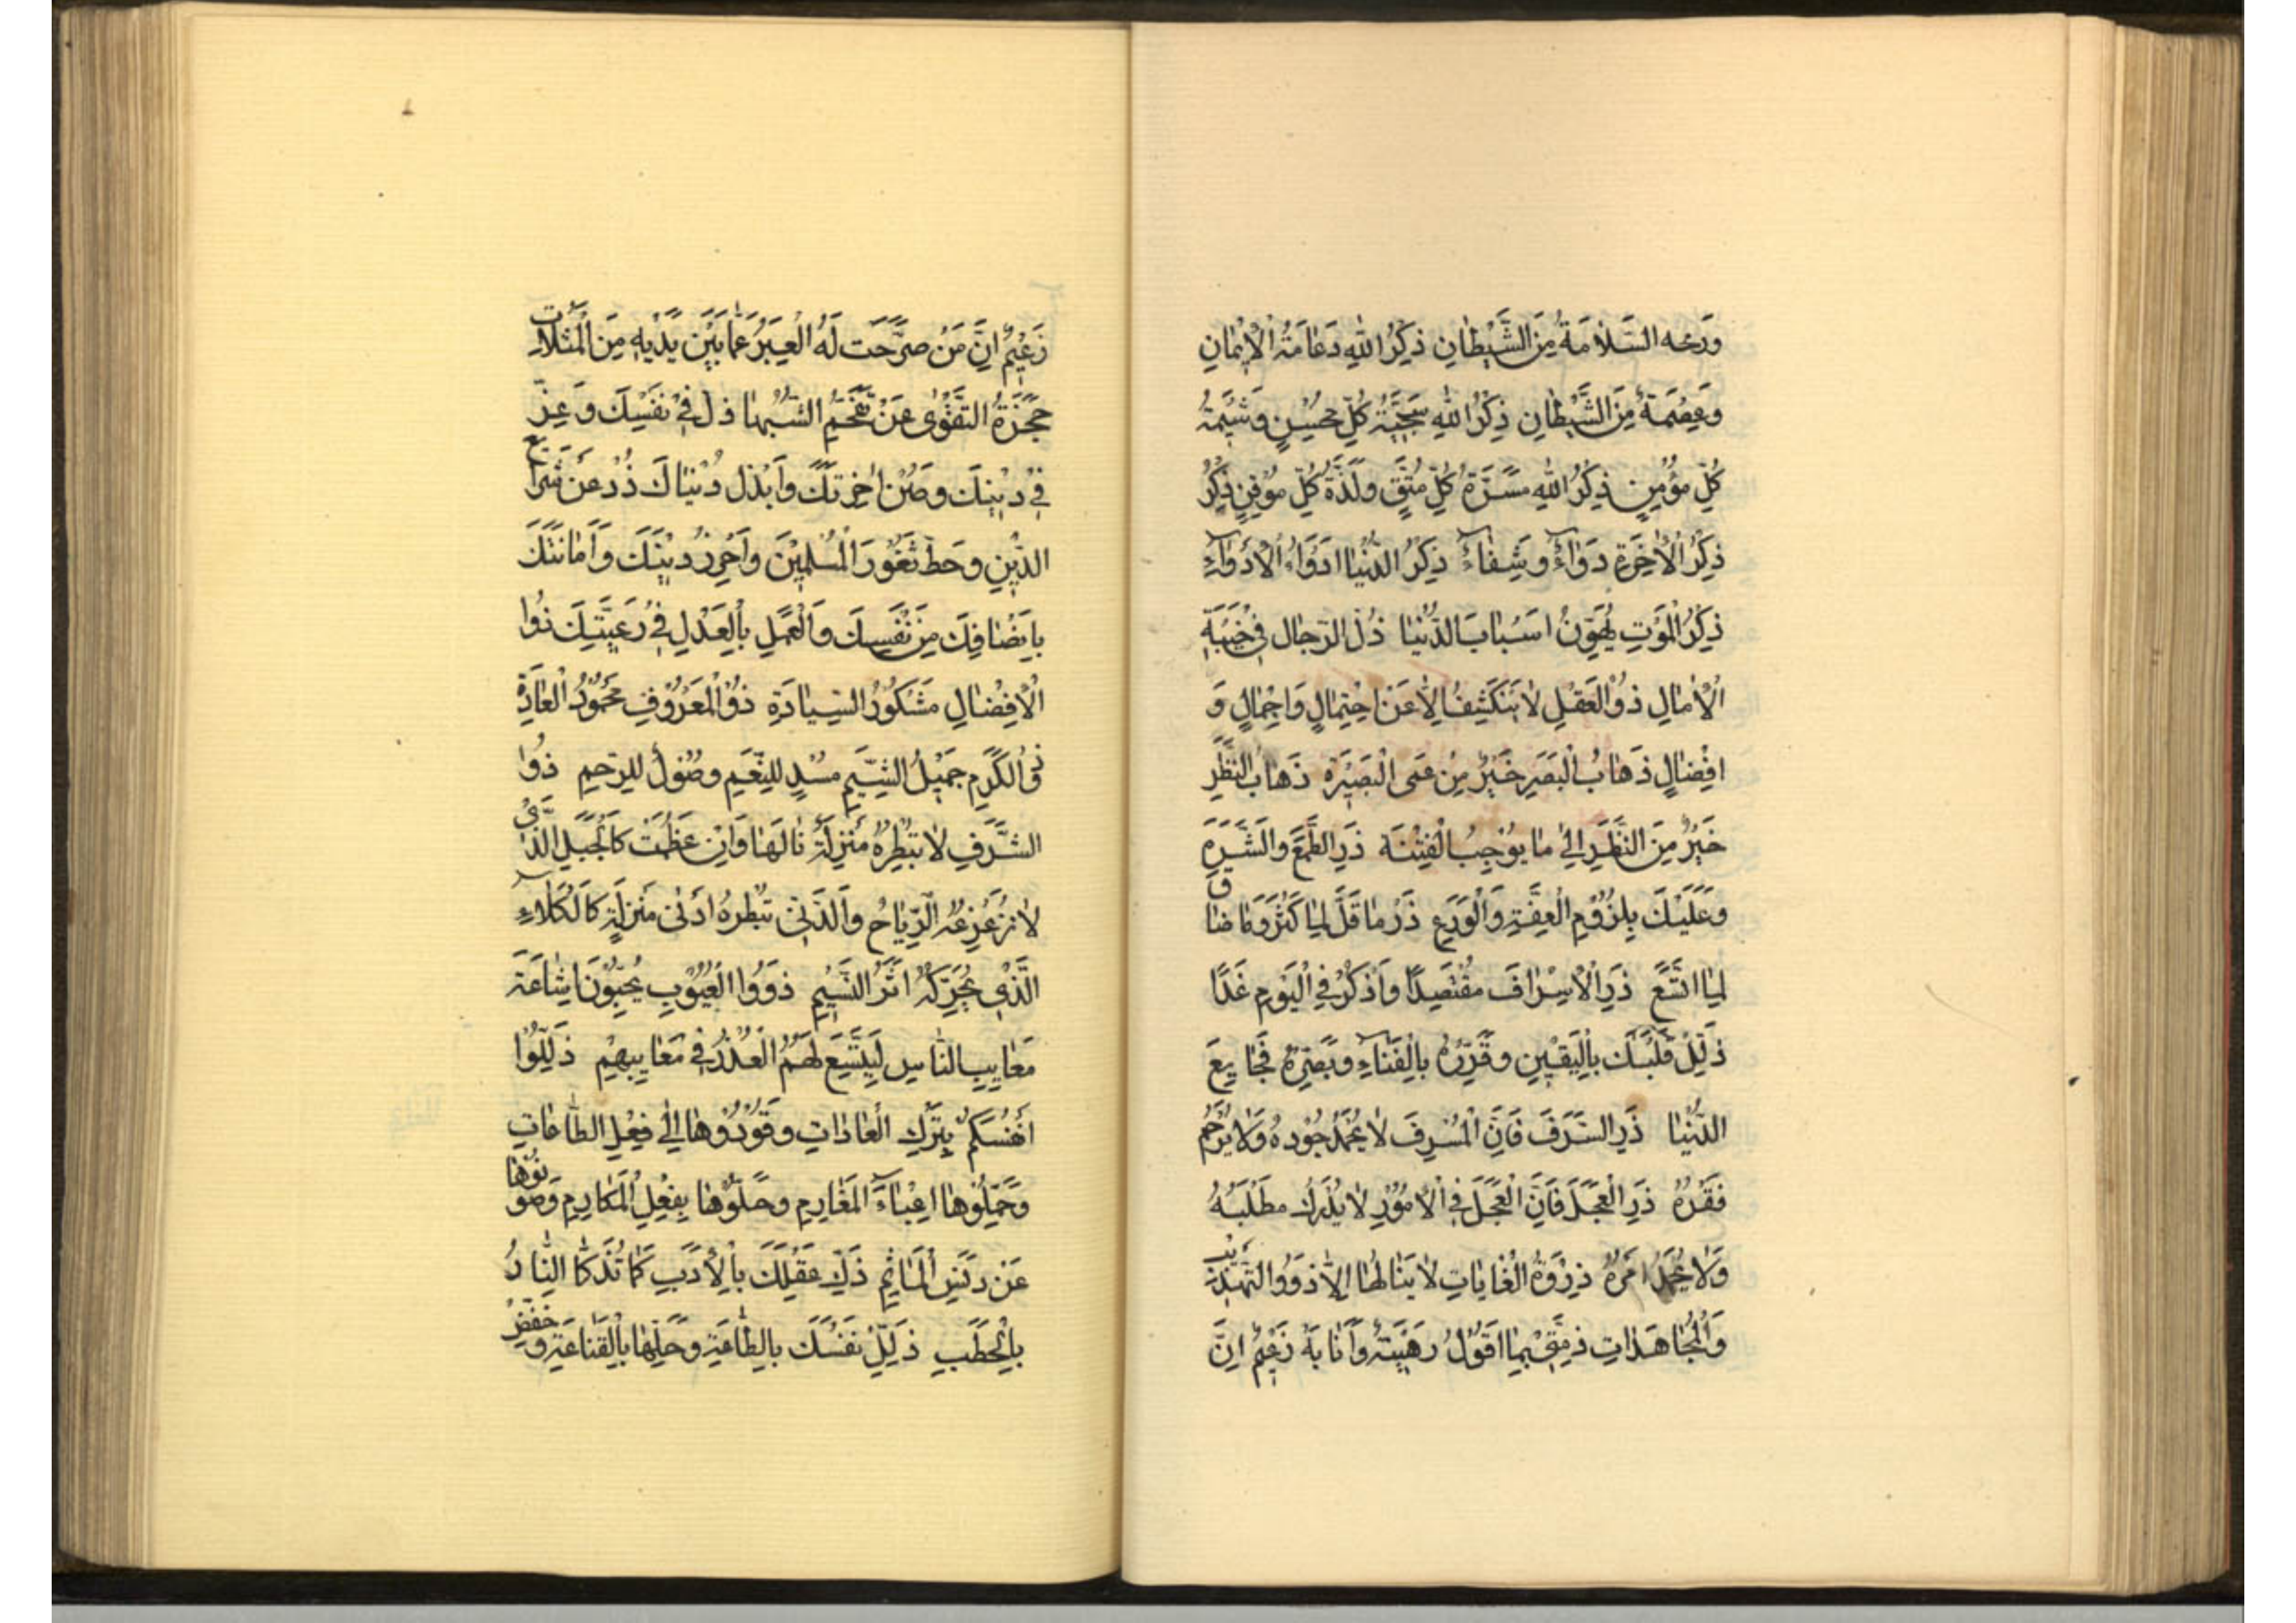 وربحه السَّلامَةُ مِنَ الشَّيْطانِ ذِكْرُ اللهِ دَعامَةُ الْإيْمانِ
وَعِصْمَةٌ مِنَ الشَّيْطانِ ذِكْرُ اللهِ سَجِيَّةُ كُلِّ مُحْسِنٍ وَشيمَةُ
كُلِّ مُؤْمِنٍ ذِكْرُ اللهِ مَسَرَّةُ كُلِّ مُتَّقٍ وَلَذَّةُ كُلِّ مُوْقِنٍ ذِكْرُ
ذِكْرُ الْأخِرَةِ دَوَاءٌ وَشِفاءٌ ذِكْرُ الدُّنْيا اَدْوَاءُ الْأدْوَاءِ
ذِكْرُ الْمَوْتِ يُهَوِّنُ اَسْبابَ الدُّنْيا ذُلُّ الرِّجالِ فى خَيْبَةِ
الْأمالِ ذُو الْعَقْلِ لا يَنْكَشِفُ اِلَّا عَنْ اِحْتِمالٍ وَاِجْمالٍ وَ
اِفْضالٍ ذَهابُ الْبَصَرِ خَيْرٌ مِنْ عَمَى الْبَصيْرَةِ ذَهابُ النَّظَرِ
خَيْرٌ مِنَ النَّظَرِ اِلى ما يُوْجِبُ الْفِتْنَةَ ذَرِ الطَّمَعَ وَالشَّرَهَ
وَعَلَيْكَ بِلُزُوْمِ الْعِفَّةِ وَالْوَرَعِ ذَرْ ما قَلَّ لِما كَثُرَ وَما ضاق
لِما اتَّسَعَ ذَرِ الْاِسْرافَ مُقْتَصِدًا وَاذْكُرْ فِى الْيَوْمِ غَدًا
ذَلِّلْ قَلْبَكَ بِالْيَقيْنِ وَقَرِّرْهُ بِالْفَناءِ وَبَصِّرْهُ فَجايِعَ
الدُّنْيا ذَرِ السَّرَفَ فَاِنَّ الْمُسْرِفَ لا يُحْمَدُ جُوْدُهُ وَلا يُرْحَمُ
فَقْرُهُ ذَرِ الْعَجَلَ فَاِنَّ الْعَجَلَ فِى الْاُمُوْرِ لا يُدْرَكُ مَطْلَبُهُ
وَلا يُحْمَدُ اَمْرُهُ ذِرْوَةُ الْغاياتِ لا يَنالُها اِلَّا ذَوُو التَّهْذيبِ
وَالْمُجاهَداتِ ذِمَّتى بِما اَقُوْلُ رَهيْنَةٌ وَاَنَا بِهِ زَعيْمٌ اِنَّ
زَعيْمٌ اِنَّ مَنْ صَرَّحَتْ لَهُ الْعِبَرُ عَمَّا بَيْنَ يَدَيْهِ مِنَ الْمَثُلاتِ
حَجَزَهُ التَّقْوٰى عَنْ تَقَحُّمِ الشُّبُهاتِ ذِلَّ فى نَفْسِكَ وَعِزَّ
فى ديْنِكَ وَصُنْ اٰخِرَتَكَ وَابْذُلْ دُنْياكَ ذُدْ عَنْ شَرايِعِ
الدّيْنِ وَحُطْ ثُغُوْرَ الْمُسْلِميْنَ وَاَحْرِزْ ديْنَكَ وَاَمانَتَكَ
بِاِنْصافِكَ مِنْ نَفْسِكَ وَالْعَمَلِ بِالْعَدْلِ فى رَعِيَّتِكَ ذُوا
الْاِفْضالِ مَشْكُوْرُ السِّيادَةِ ذُو الْمَعْرُوْفِ مَحْمُوْدُ الْعادَةِ
ذُو الْكَرَمِ جَميْلُ الشِّيَمِ مُسْدٍ لِلنِّعَمِ وَصُوْلٌ لِلرَّحِمِ ذُوا
الشَّرَفِ لا تُبْطِرُهُ مَنْزِلَةٌ نالَها وَاِنْ عَظُمَتْ كَالْجَبَلِ الَّذى
لا تُزَعْزِعُهُ الرِّياحُ وَالدَّنِىُّ تُبْطِرُهُ اَدْنٰى مَنْزِلَةٍ كَالْكَلَاءِ
الَّذى يُحَرِّكُهُ اَثَرُ النَّسيْمِ ذَوُوا الْعُيُوْبِ يُحِبُّوْنَ اِشاعَةَ
مَعايِبِ النَّاسِ لِيَتَّسِعَ لَهُمُ الْعُذْرُ فى مَعايِبِهِمْ ذَلِّلُوْا
اَنْفُسَكُمْ بِتَرْكِ الْعاداتِ وَقُوْدُوْها اِلى فِعْلِ الطَّاعاتِ
وَحَمِّلُوْها اَعْباءَ الْمَغارِمِ وَحَلُّوْها بِفِعْلِ الْمَكارِمِ وَصُوْنُوْها
عَنْ دَنَسِ الْمَاثِمِ ذَكِّ عَقْلَكَ بِالْاَدَبِ كَما تُذَكَّا النَّارُ
بِالْحَطَبِ ذَلِّلْ نَفْسَكَ بِالطَّاعَةِ وَحَلِّها بِالْقَناعَةِ وَخَفِّضْ